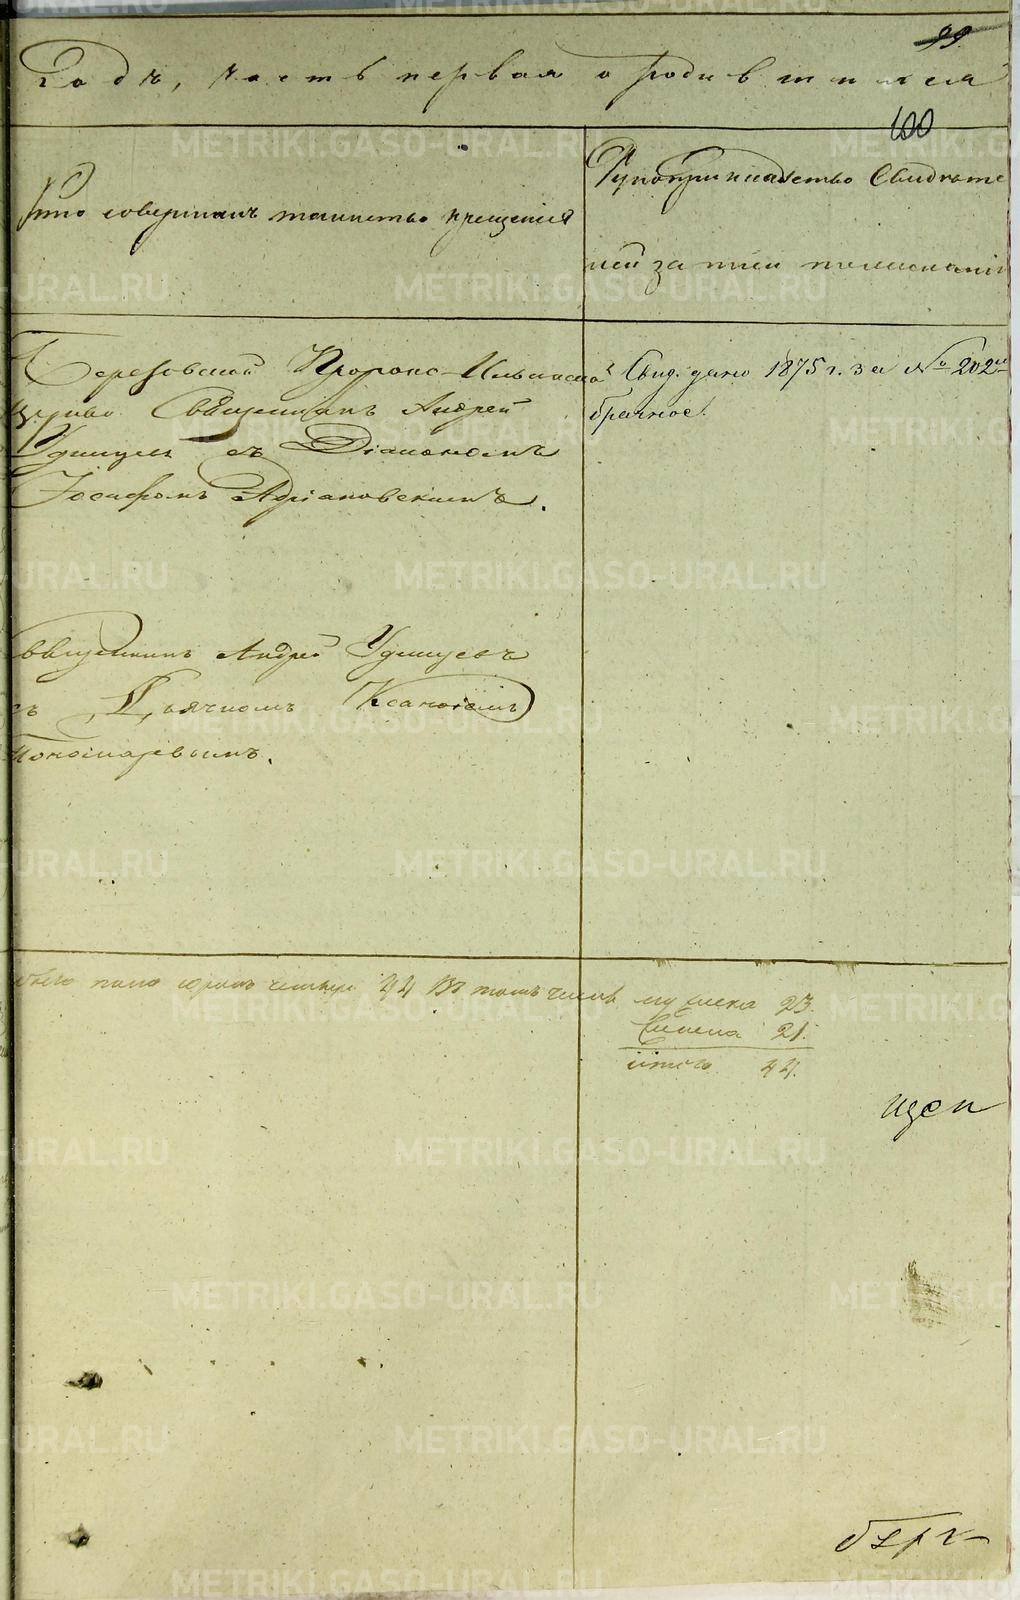 99.
Годъ, часть первая о родившихся
100
Кто совершалъ таинство крещенія
Рукоприкладство Свидѣте
лей записи по желанію
Березовской Пророко-Ильинской
Церкви Священникъ Андрей
Удинцевъ съ Діакономъ
Іосифомъ Адріановскимъ.
Свид. дано 1875 г. за № 202
брачное.
Священникъ Андрей Удинцевъ
съ Дьячкомъ
Пономаревымъ.
Всего сорокъ четыре 44 Въ томъ числѣ мужеска 23.
женска 21.
итого 44.